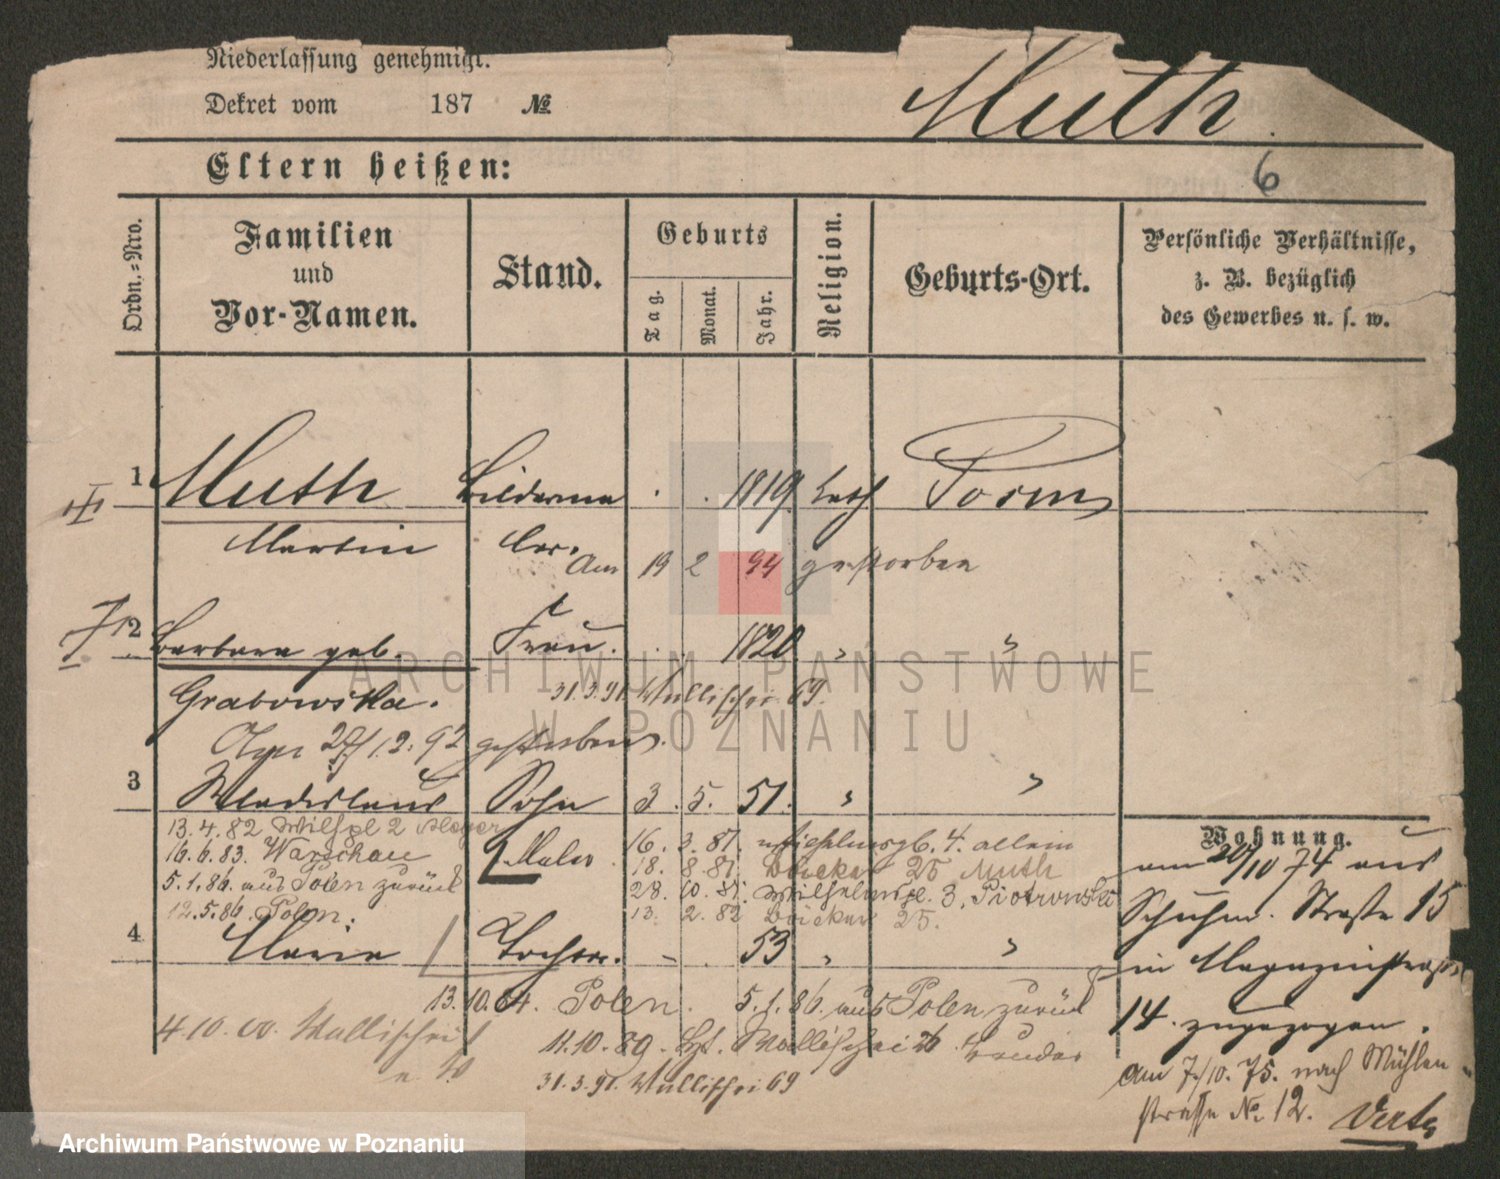 Niederlassung genehmigt.
Dekret vom 187 №
Muth.
6
Eltern heißen:
Ordn.=Nro.
Familien und Vor-Namen.
Stand.
Geburts
Tag. Monat. Jahr.
Religion.
Geburts-Ort.
Persönliche Verhältnisse, z. B. bezüglich des Gewerbes u. s. w.
1 Muth 1819 kath Posen
Martin
Am 19 2 94 gestorben
2 Barbara geb. Frau. 1820 " "
Grabowska. 31.3.91. Wallischei 69.
27/12.92 gestorben.
3 Wladislaus Sohn 3. 5. 51. " "
13.4.82 2
16.6.83. Warschau
5.1.86. aus Polen zurück
12.5.86. Polen.
Maler.
16. 3. 81. 4. allein
18. 8 81. Bäcker 25 Muth
28. 10. 81. Wilhelmspl. 3. Piotrowski
13. 2. 82 Bäcker 25.
4 Maria Tochter. 53 " "
13.10.84. Polen. 5.1.86. aus Polen zurück
4.10.00. Wallischei
11.10.89. Wallischei
31.3.91. Wallischei 69
Wohnung.
am 20/10 74 aus
Schuhm. Straße 15
in Magazinstraße
14. zugezogen.
Am 7./10. 75. nach Mühlen-
strasse №. 12. Verte
ARCHIWUM PAŃSTWOWE
W POZNANIU
Archiwum Państwowe w Poznaniu